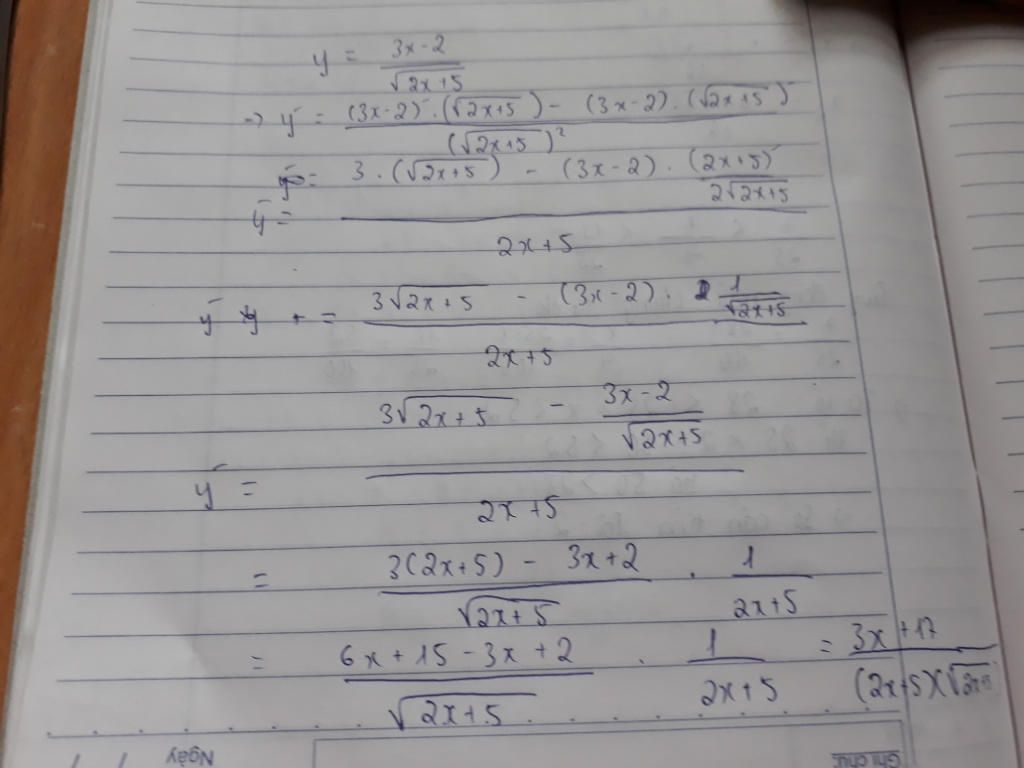 y = (3x-2)/√(2x+5)
→ y' = ((3x-2)'.(√(2x+5)) - (3x-2).(√(2x+5))')/(√(2x+5))²
y' = (3.(√(2x+5)) - (3x-2).(2x+5)'/(2√(2x+5)))/(2x+5)
y' = (3√(2x+5) - (3x-2).1/√(2x+5))/(2x+5)
y' = (3√(2x+5) - (3x-2)/√(2x+5))/(2x+5)
= (3(2x+5) - 3x+2)/√(2x+5) . 1/(2x+5)
= (6x+15-3x+2)/√(2x+5) . 1/(2x+5) = (3x+17)/((2x+5)(√(2x+5)))
Ngày
Ghi chú: